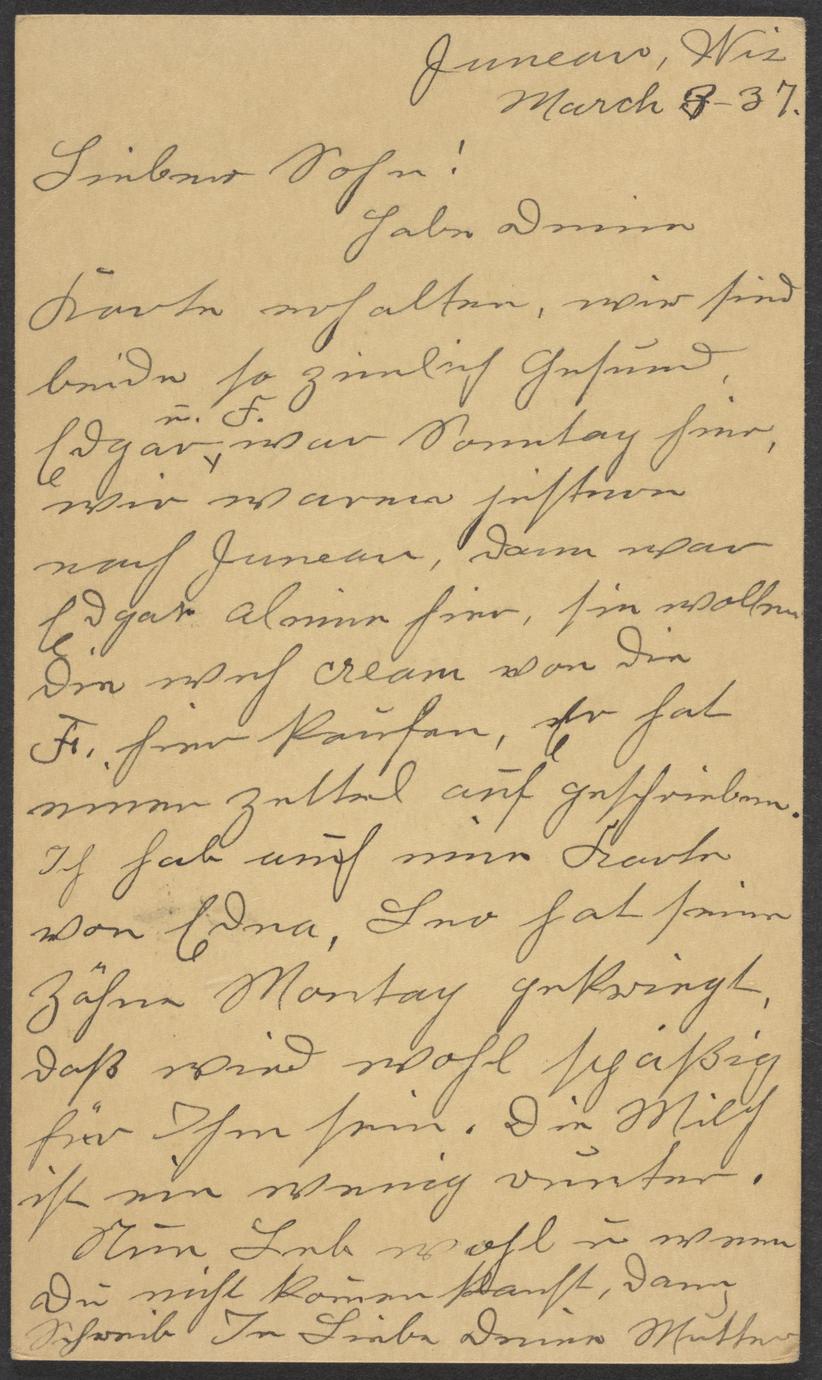 Juneau, Wis
March 3-37.
Lieber Sohn!
Habe Deine
Karte erhalten, wir sind
beide so zimlich Gesund,
u. F.
Edgar, war Sonntag hier,
wir waren
nach Juneau, dann war
Edgar aleine hier, sie wollen
die cream von die
F. hier kaufen, Er hat
einen zettel auf geschrieben.
Ich hab auch eine Karte
von Edna, Leo hat seine
Zähne Montag gekriegt,
daß wird wohl späßig
für Ihm sein. Die Milch
ist ein wenig runter.
Nun Leb wohl u wenn
Du nicht kom̄en kanst, dann
Schreib In Liebe Deine Mutter